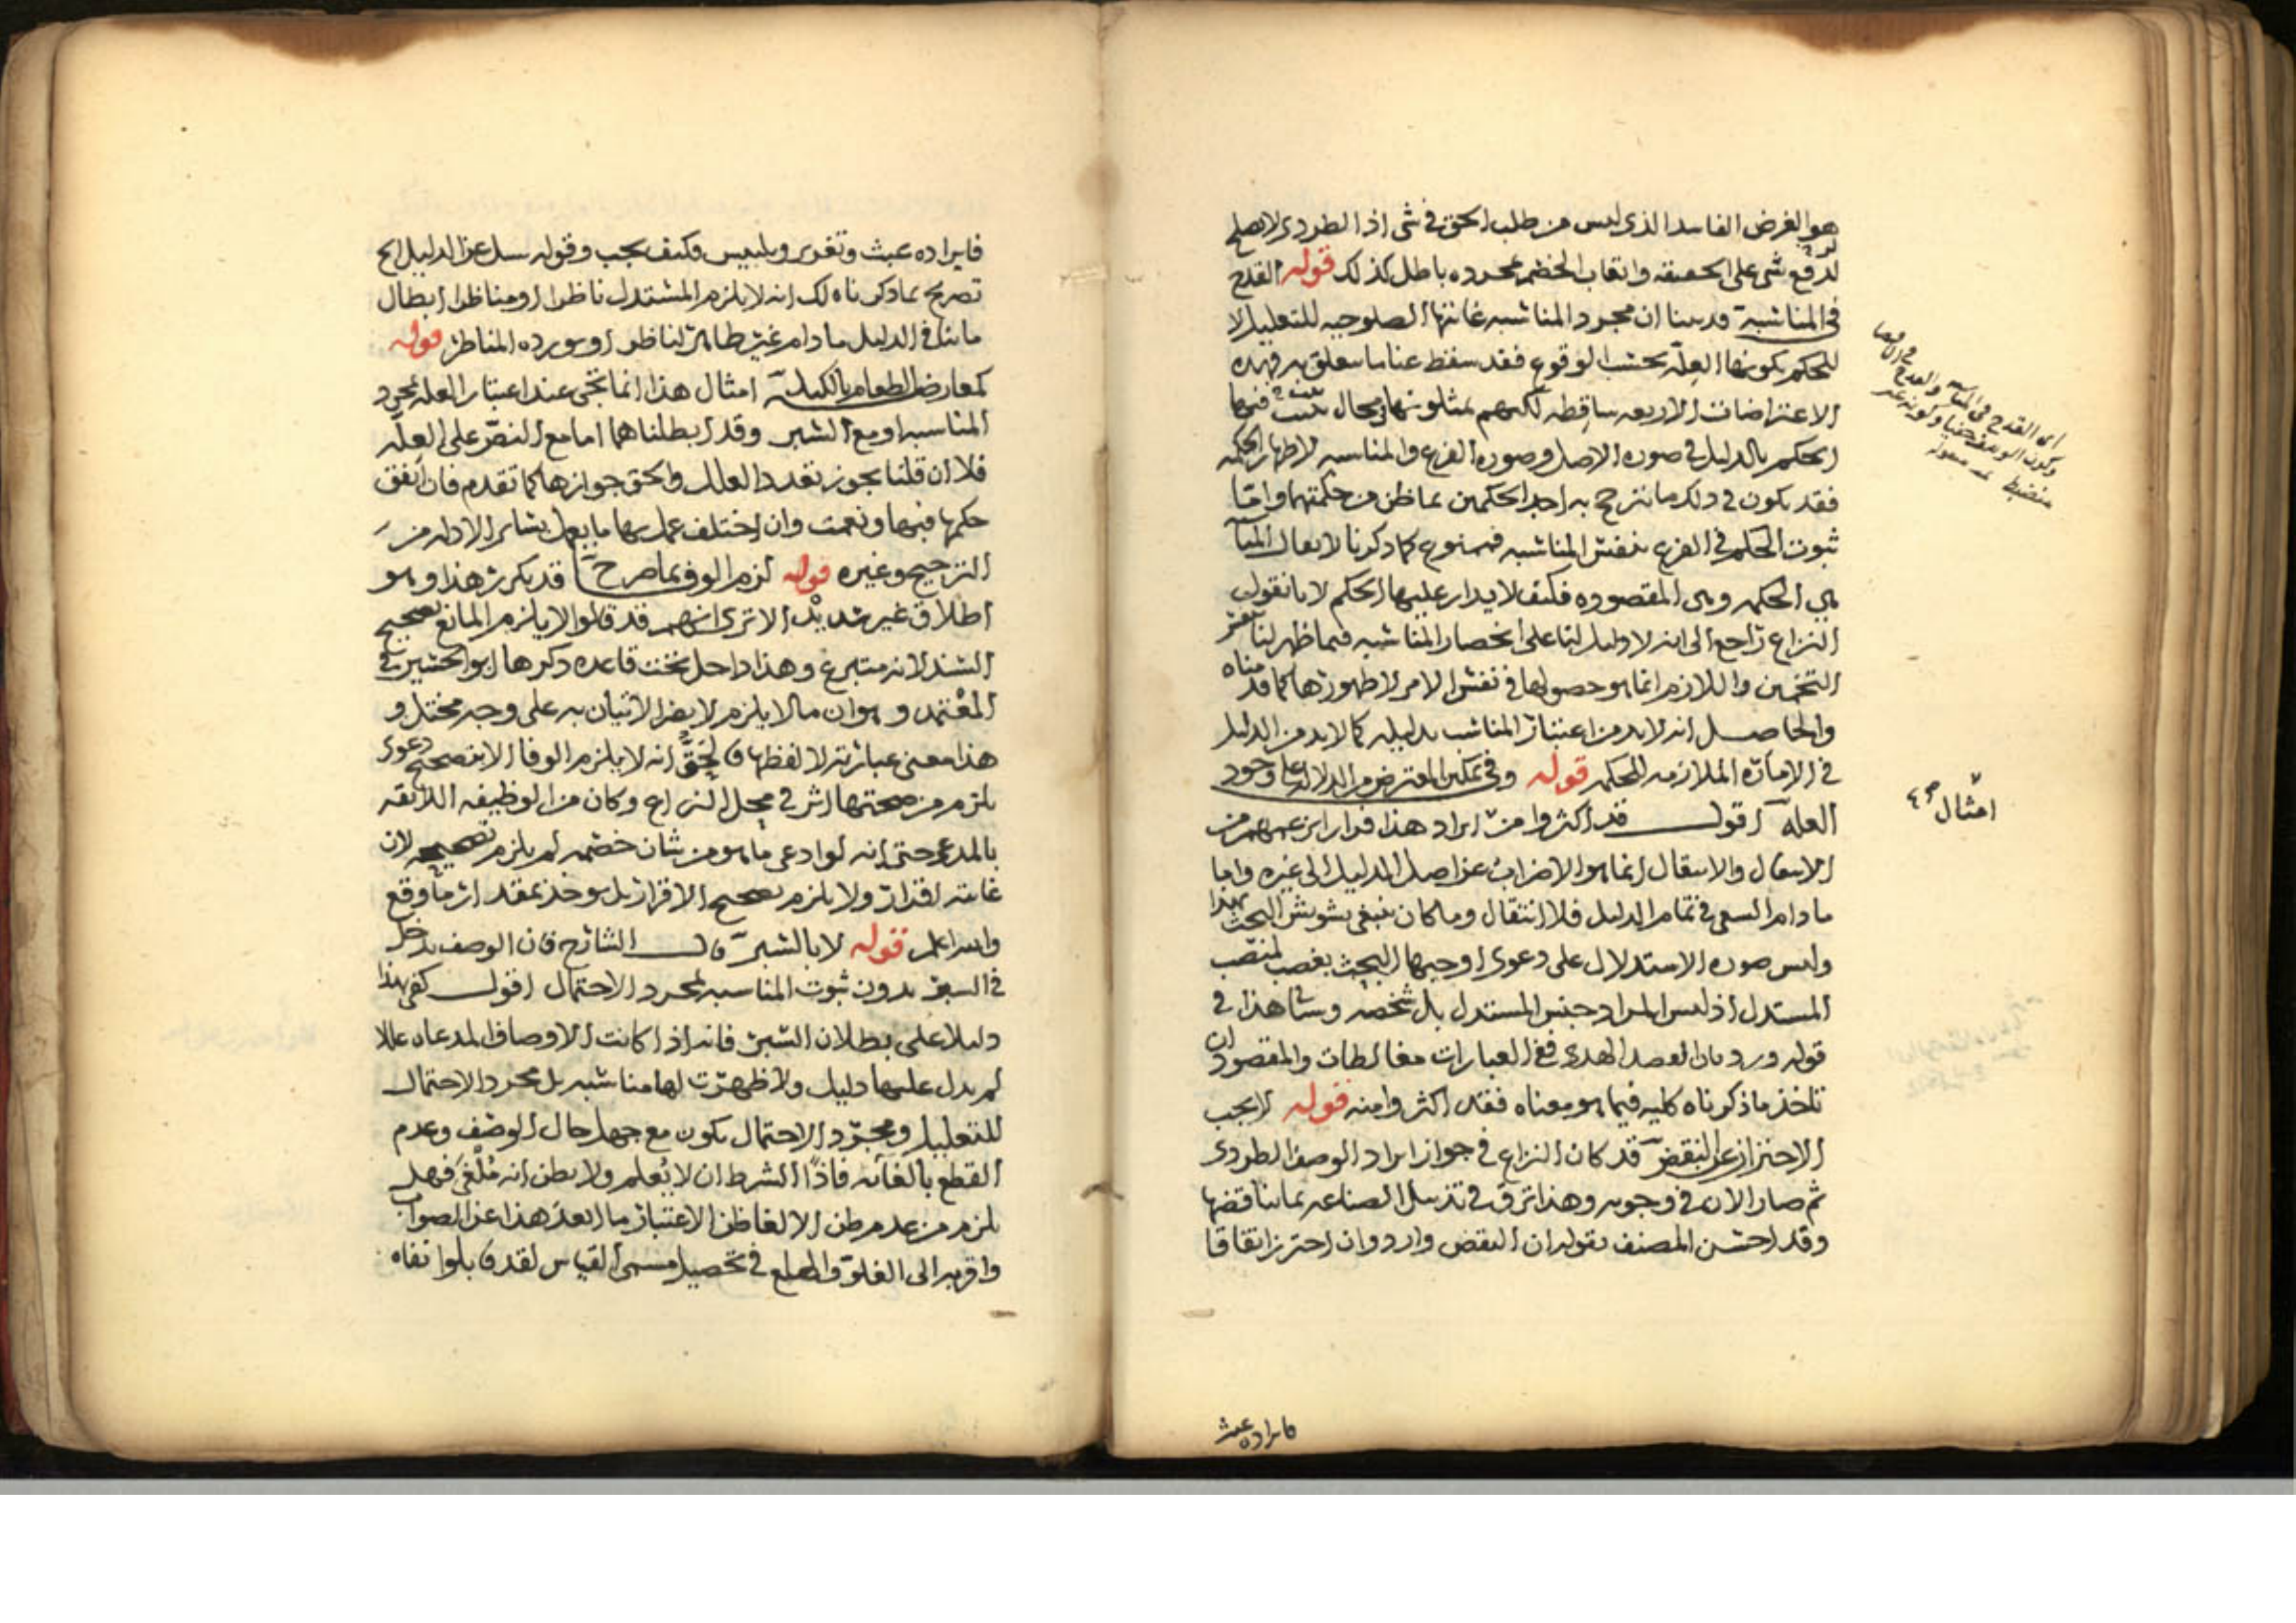 هو الغرض الفاسد الذي ليس من طلب الحق في شي اذ الطردي لا يصلح
لدفع شي على الحقيقه واتعاب الخصم بمجرده باطل كذلك قوله القدح
في المناسبة قد بينا ان مجرد المناسبه غايتها الصلوحيه للتعليل لا
للحكم بكونها العلة بحسب الوقوع فقد سقط عنا ما يتعلق به فهذه
الاعتراضات الاربعه ساقطه لكنهم يمثلونها بمحال يثبت فيها
الحكم بالدليل في صوره الاصل وصوره الفرع والمناسبه لاظهار الحكمه
فقد يكون في ذلك ما يترجح به احد الحكمين بما ظن من حكمتهما واما
ثبوت الحكم في الفرع بنفس المناسبه فممنوع كما ذكرنا لا يقال
هي الحكمه وهي المقصوده فكيف لا يدار عليها الحكم لانا نقول
النزاع راجع الى انه لا دليل لنا على انحصار المناسبه فيما ظهر لنا
التخمين واللازم انما هو حصولها في نفس الامر لا ظهورها كما قدمناه
والحاصل انه لا بد من اعتبار المناسب بدليله كما لا بد من الدليل
في الامارة الملازمه للحكم قوله وفي تمكين المعترض من الدلالة على وجود
العلة اقول قد اكثروا من ايراد هذا فرارا بزعمهم من
الانتقال والانتقال انما هو الاضراب عن اصل الدليل الى غيره واما
ما دام السعي في تمام الدليل فلا انتقال وما كان ينبغي تشويش البحث بهذا
وليس صوره الاستدلال على دعوى اوجبها البحث بغصب لمنصب
المستدل اذ ليس المراد جنس المستدل بل شخصه وسيأتي هذا في
قوله ورد بان القصد الهدم ففي العبارات مغالطات والمقصود ان
تاخذ ما ذكرناه كليه فيما هو معناه فقد اكثروا منه قوله لا يجب
الاحتراز عن النقض قد كان النزاع في جواز ايراد الوصف الطردي
ثم صار الان في وجوبه وهذا ترق في تذييل الصناعه بما يناقضها
وقد احسن المصنف بقوله ان النقض وارد وان احترز اتفاقا
امثال
فايراده عبث
فايراده عبث وتغرير وتلبيس وكيف يجب وقوله سيل عن الدليل الخ
تصريح بما ذكرناه لك انه لا يلزم المستدل ناظرا او مناظرا ابطال
ما ينافي الدليل ما دام غير ظاهر لناظر او يورده المناظر قوله
كمعارض الطعام بالكيل امثال هذا انما تجي عند اعتبار العله بمجرد
المناسبه او مع السبر وقد ابطلناهما اما مع النص على العلة
فلا ان قلنا بجوز تعدد العلل والحق جوازها كما تقدم فان اتفق
حكمها فبها ونعمت وان اختلف عمل بها ما يعمل بسائر الادله من
الترجيح وغيره قوله لزم الوفي بما صرح قد يكرر هذا وهو
اطلاق غير سديد الا ترى انهم قد قالوا لا يلزم المانع تصحيح
السند لانه متبرع وهذا داخل تحت قاعده ذكرها ابو الحسين في
المعتمد وهو ان ما لا يلزم لا يضر الاتيان به على وجه مختل و
هذا معنى عبارته لا لفظها فالحق انه لا يلزم الوفا الا بتصحيح دعوى
يلزم من صحتها اثر في محل النزاع وكان من الوظيفه اللايقه
بالمدعي حتى انه لو ادعى ما هو من شان خصمه لم يلزم تصحيحه لان
غايته اقرار ولا يلزم تصحيح الاقرار بل يوخذ بمقدار ما وقع
والله اعلم قوله لا بالسبر قال الشارح فان الوصف يدخل
في السبر بدون ثبوت المناسبه بمجرد الاحتمال اقول كفى بهذا
دليلا على بطلان السبر فانه اذا كانت الاوصاف المدعاه عللا
لم يدل عليها دليل ولا ظهرت لها مناسبه بل مجرد الاحتمال
للتعليل ومجرد الاحتمال يكون مع جهل حال الوصف وعدم
القطع بالغائه فاذا الشرط ان لا يعلم ولا يظن انه ملغى فهل
يلزم من عدم ظن الالغا ظن الاعتبار ما ابعد هذا عن الصواب
واقربه الى الغلو والهلع في تحصيل مسمى القياس لقد قابلوا نفاه